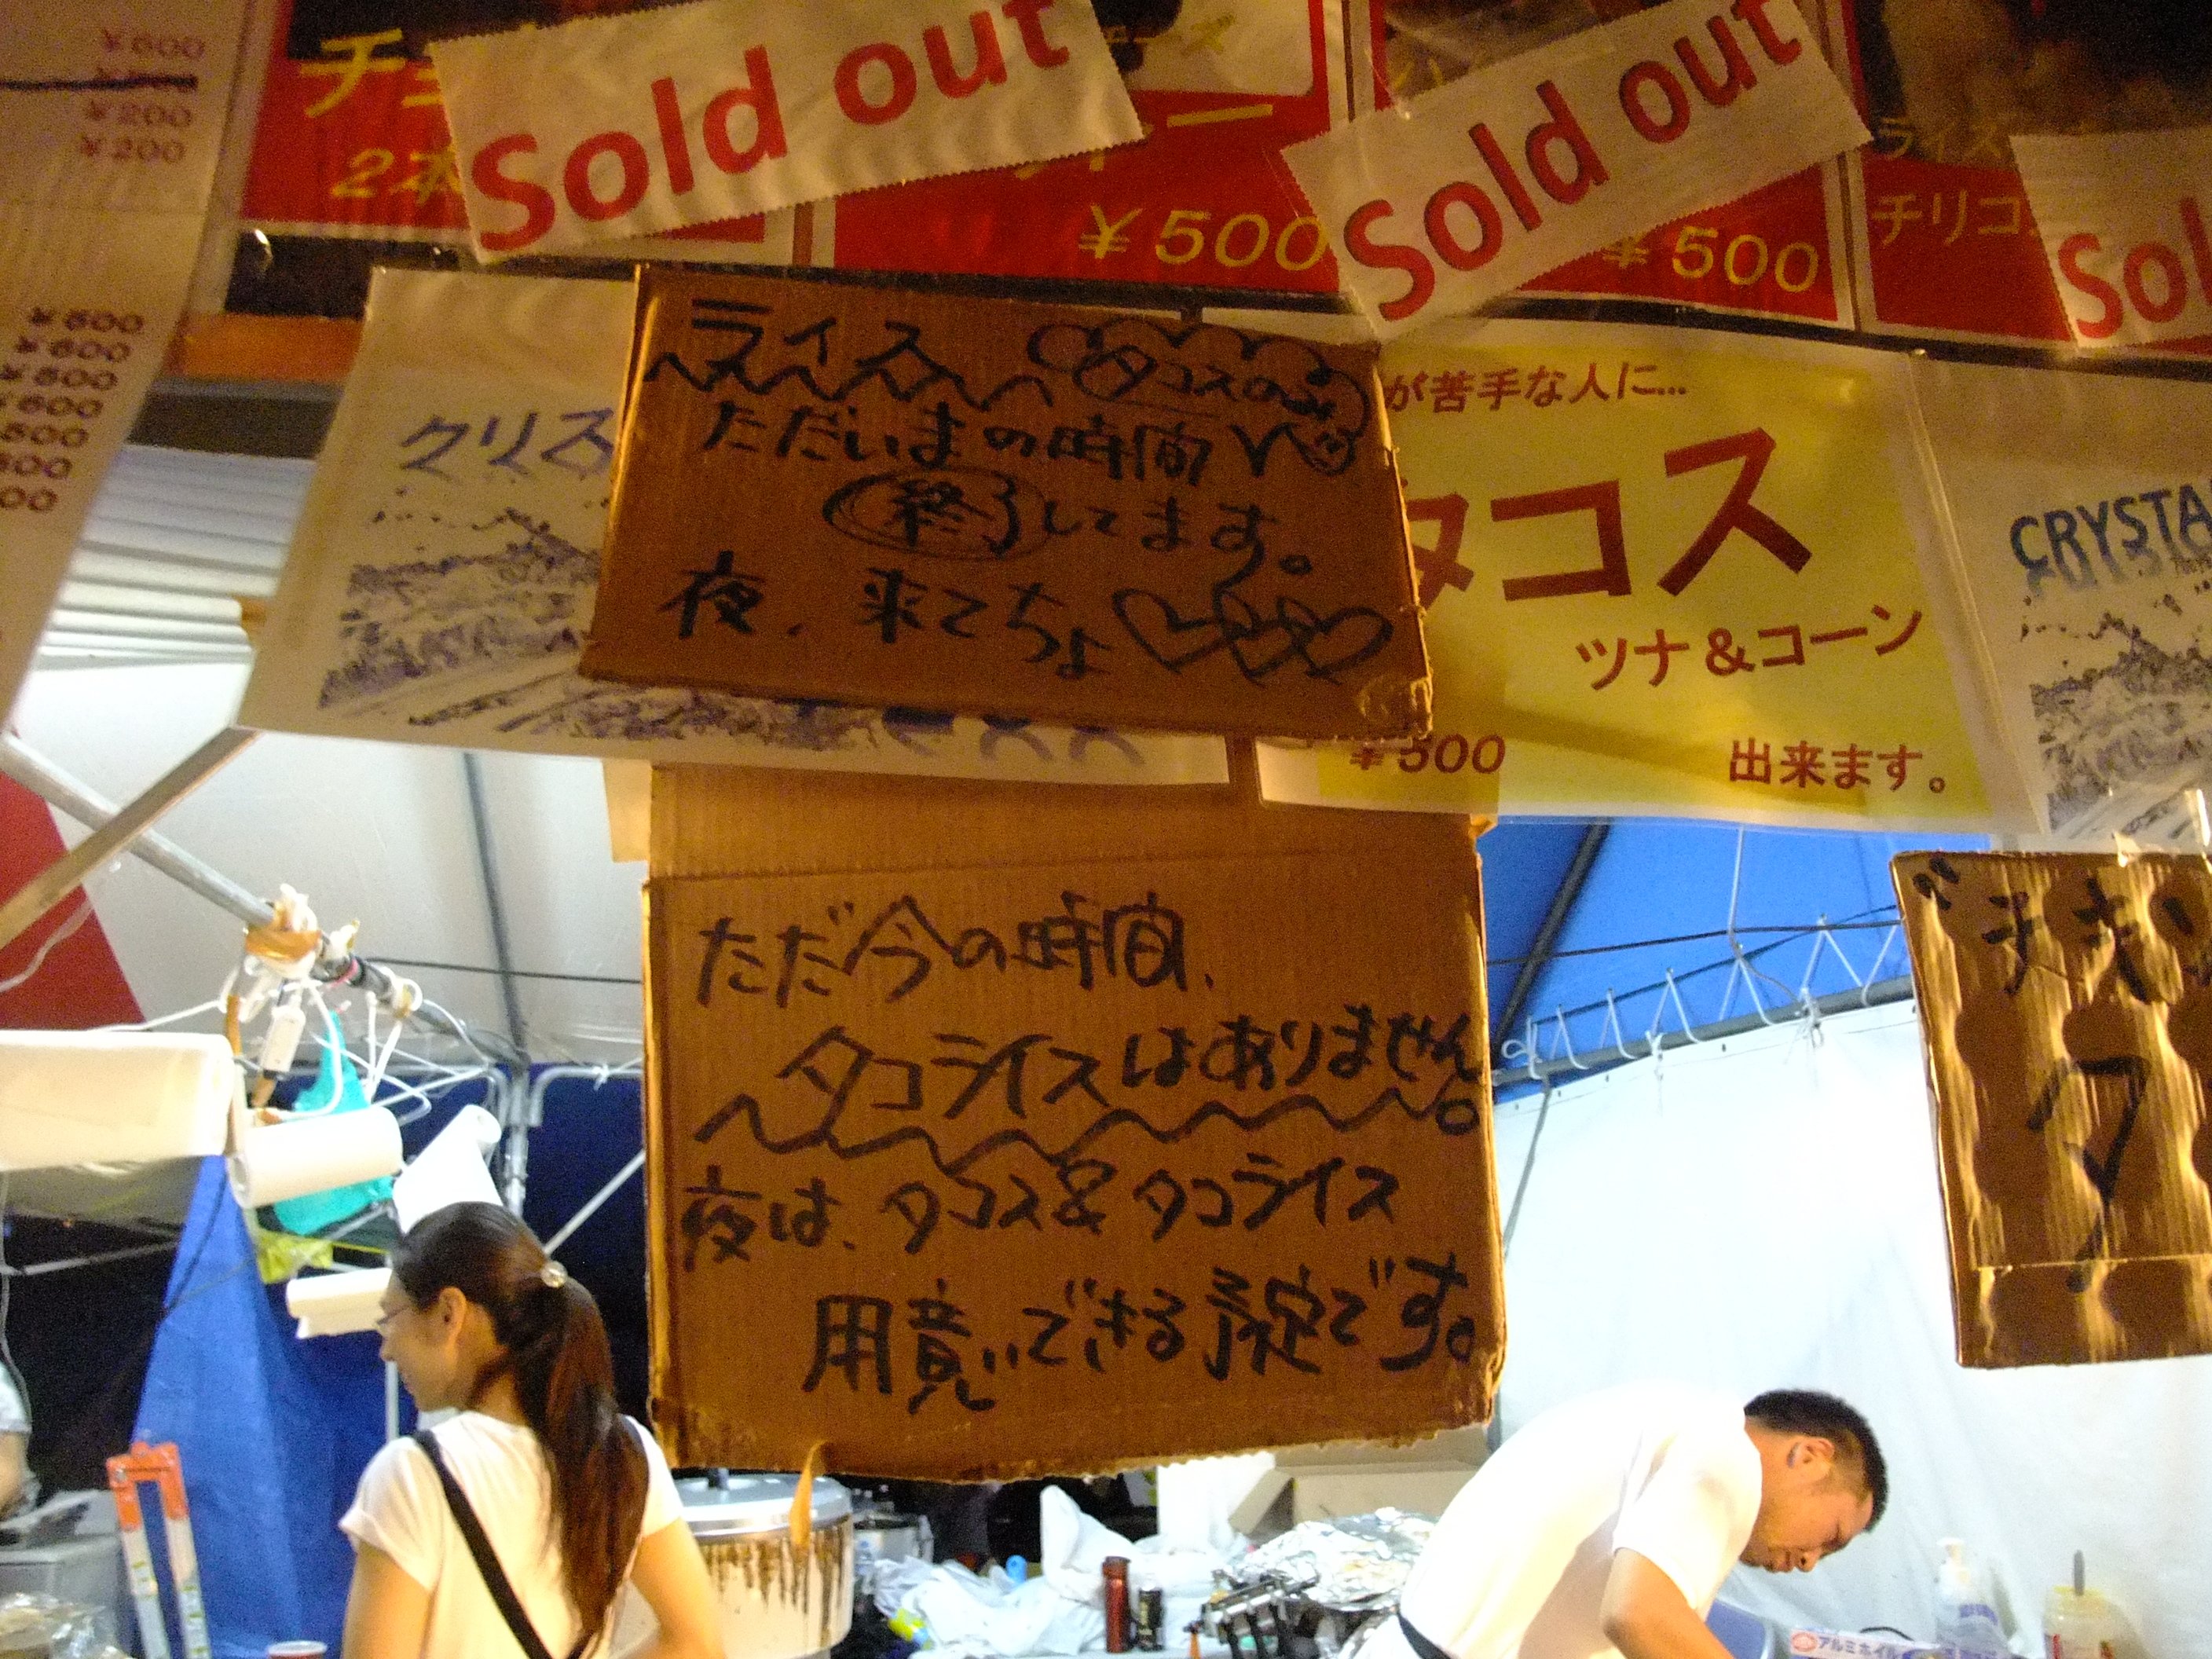 ¥600
¥200
¥200
チ
2本
Sold out
¥500
Sold out
¥500
ライス
チリコ
Sol
¥600
¥600
¥600
¥600
クリス
ライス
タコスのみ
ただいまの時間
終了してます。
夜、来てちょ
が苦手な人に...
タコス
ツナ&コーン
¥500
出来ます。
CRYSTA
ただ今の時間、
タコライスはありません。
夜は、タコス&タコライス
用意いできる予定です。
アルミホイル